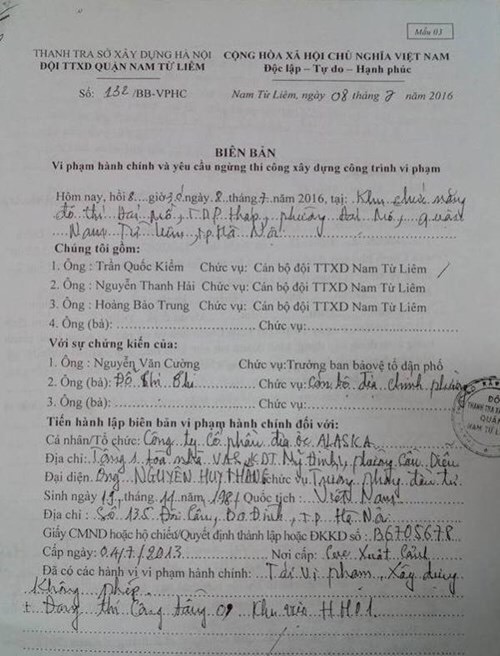 Mẫu 03
THANH TRA SỞ XÂY DỰNG HÀ NỘI
ĐỘI TTXD QUẬN NAM TỪ LIÊM
CỘNG HÒA XÃ HỘI CHỦ NGHĨA VIỆT NAM
Độc lập – Tự do – Hạnh phúc
Số: 132/BB-VPHC
Nam Từ Liêm, ngày 08 tháng 7 năm 2016
BIÊN BẢN
Vi phạm hành chính và yêu cầu ngừng thi công xây dựng công trình vi phạm
Hôm nay, hồi 8 giờ 30 ngày 8 tháng 7 năm 2016, tại: Khu chức năng
đô thị Đại Mỗ, TDP tháp, phường Đại Mỗ, quận
Nam Từ Liêm, TP Hà Nội
Chúng tôi gồm:
1. Ông : Trần Quốc Kiểm Chức vụ: Cán bộ đội TTXD Nam Từ Liêm
2. Ông : Nguyễn Thanh Hải Chức vụ: Cán bộ đội TTXD Nam Từ Liêm
3. Ông : Hoàng Bảo Trung Chức vụ: Cán bộ đội TTXD Nam Từ Liêm
4. Ông (bà): Chức vụ:
Với sự chứng kiến của:
1. Ông : Nguyễn Văn Cường Chức vụ:Trưởng ban bảo vệ tổ dân phố
2. Ông (bà): Đỗ Thị Chức vụ: Cán bộ địa chính phường
3. Ông (bà): Chức vụ:
THANH TRA
QUẬN
NAM TỪ L
Tiến hành lập biên bản vi phạm hành chính đối với:
Cá nhân/Tổ chức: Công ty Cổ phần địa ốc ALASKA
Địa chỉ: Tầng 1 toà nhà KĐT Mỹ Đình, phường Cầu Diễn
Đại diện: Ông NGUYỄN HUY THẮNG chức vụ Trưởng phòng đầu tư
Sinh ngày 19 tháng 11 năm 1981 Quốc tịch : Việt Nam
Địa chỉ : Số 135 Đội Cấn, Ba Đình, TP Hà Nội
Giấy CMND hoặc hộ chiếu/Quyết định thành lập hoặc ĐKKD số : B6705678
Cấp ngày: 04/7/2013 Nơi cấp: Cục Xuất Cảnh
Đã có các hành vi vi phạm hành chính: Tái vi phạm, Xây dựng
Không phép
+ Đang thi công tầng 01 Khu HH01